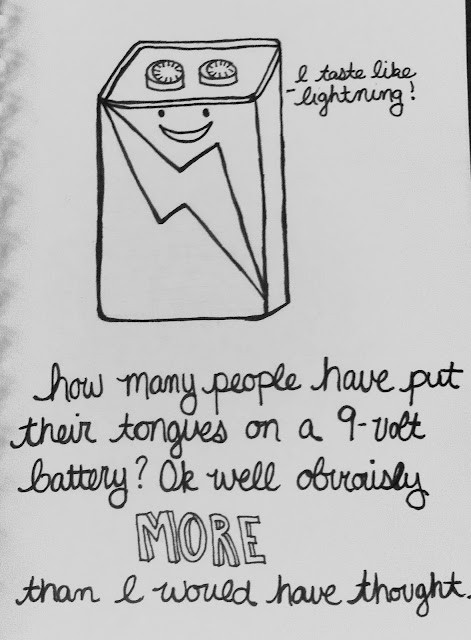 I taste like
lightning!
how many people have put
their tongues on a 9-volt
battery? Ok well obviously
MORE
than I would have thought.